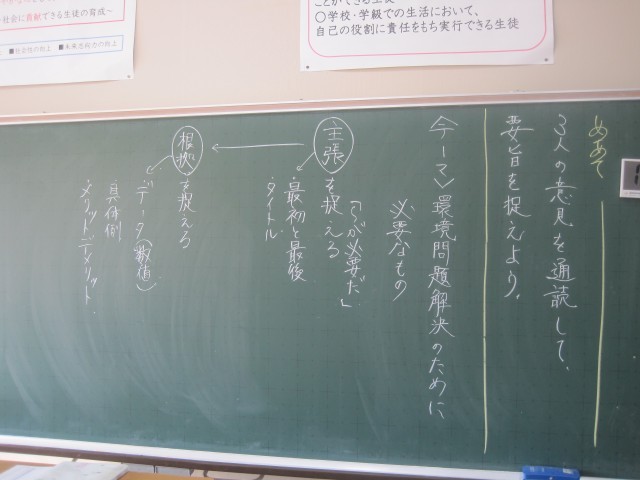 社会に貢献できる生徒の育成～
■社会性の向上 ■未来志向力の向上
ことができる生徒
○学校・学級での生活において、
自己の役割に責任をもち実行できる生徒
めあて
3人の意見を通読して、
要旨を捉えよう。
テーマ＞環境問題解決のために
必要なもの
主張を捉える
「～が必要だ」
・最初と最後
・タイトル
根拠を捉える
・データ(数値)
・具体例
・メリット・デメリット